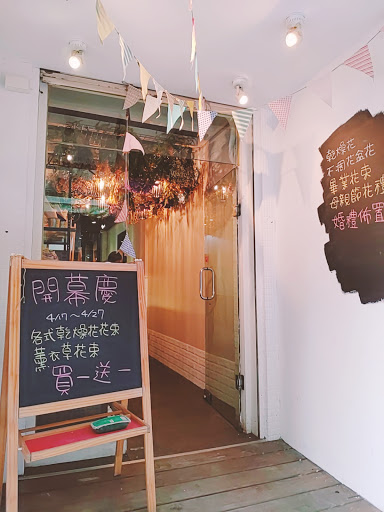 開幕慶
4/17～4/27
各式乾燥花花束
薰衣草花束
買一送一
乾燥花
不凋花盆花
畢業花束
母親節花禮
婚禮佈置